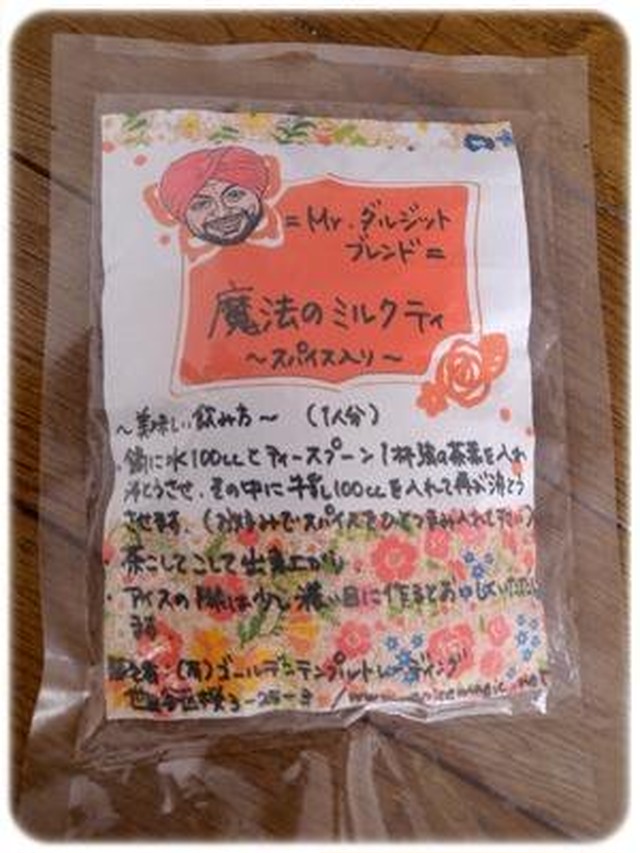 =Mr.ダルジット
ブレンド=
魔法のミルクティ
~スパイス入り~
~美味しい飲み方~ (1人分)
・鍋に水100ccとティースプーン1杯強の茶葉を入れ
沸とうさせ、その中に牛乳100ccを入れて再び沸とう
させます。(お好みでスパイスをひとつまみ入れて下さい)
・茶こしでこして出来上がり。
・アイスの際は少し濃い目に作るとおいしくいただけ
ます
(有)ゴールデンテンプルトレーディング
世田谷区桜3-25-3 / www.spicemagic.net